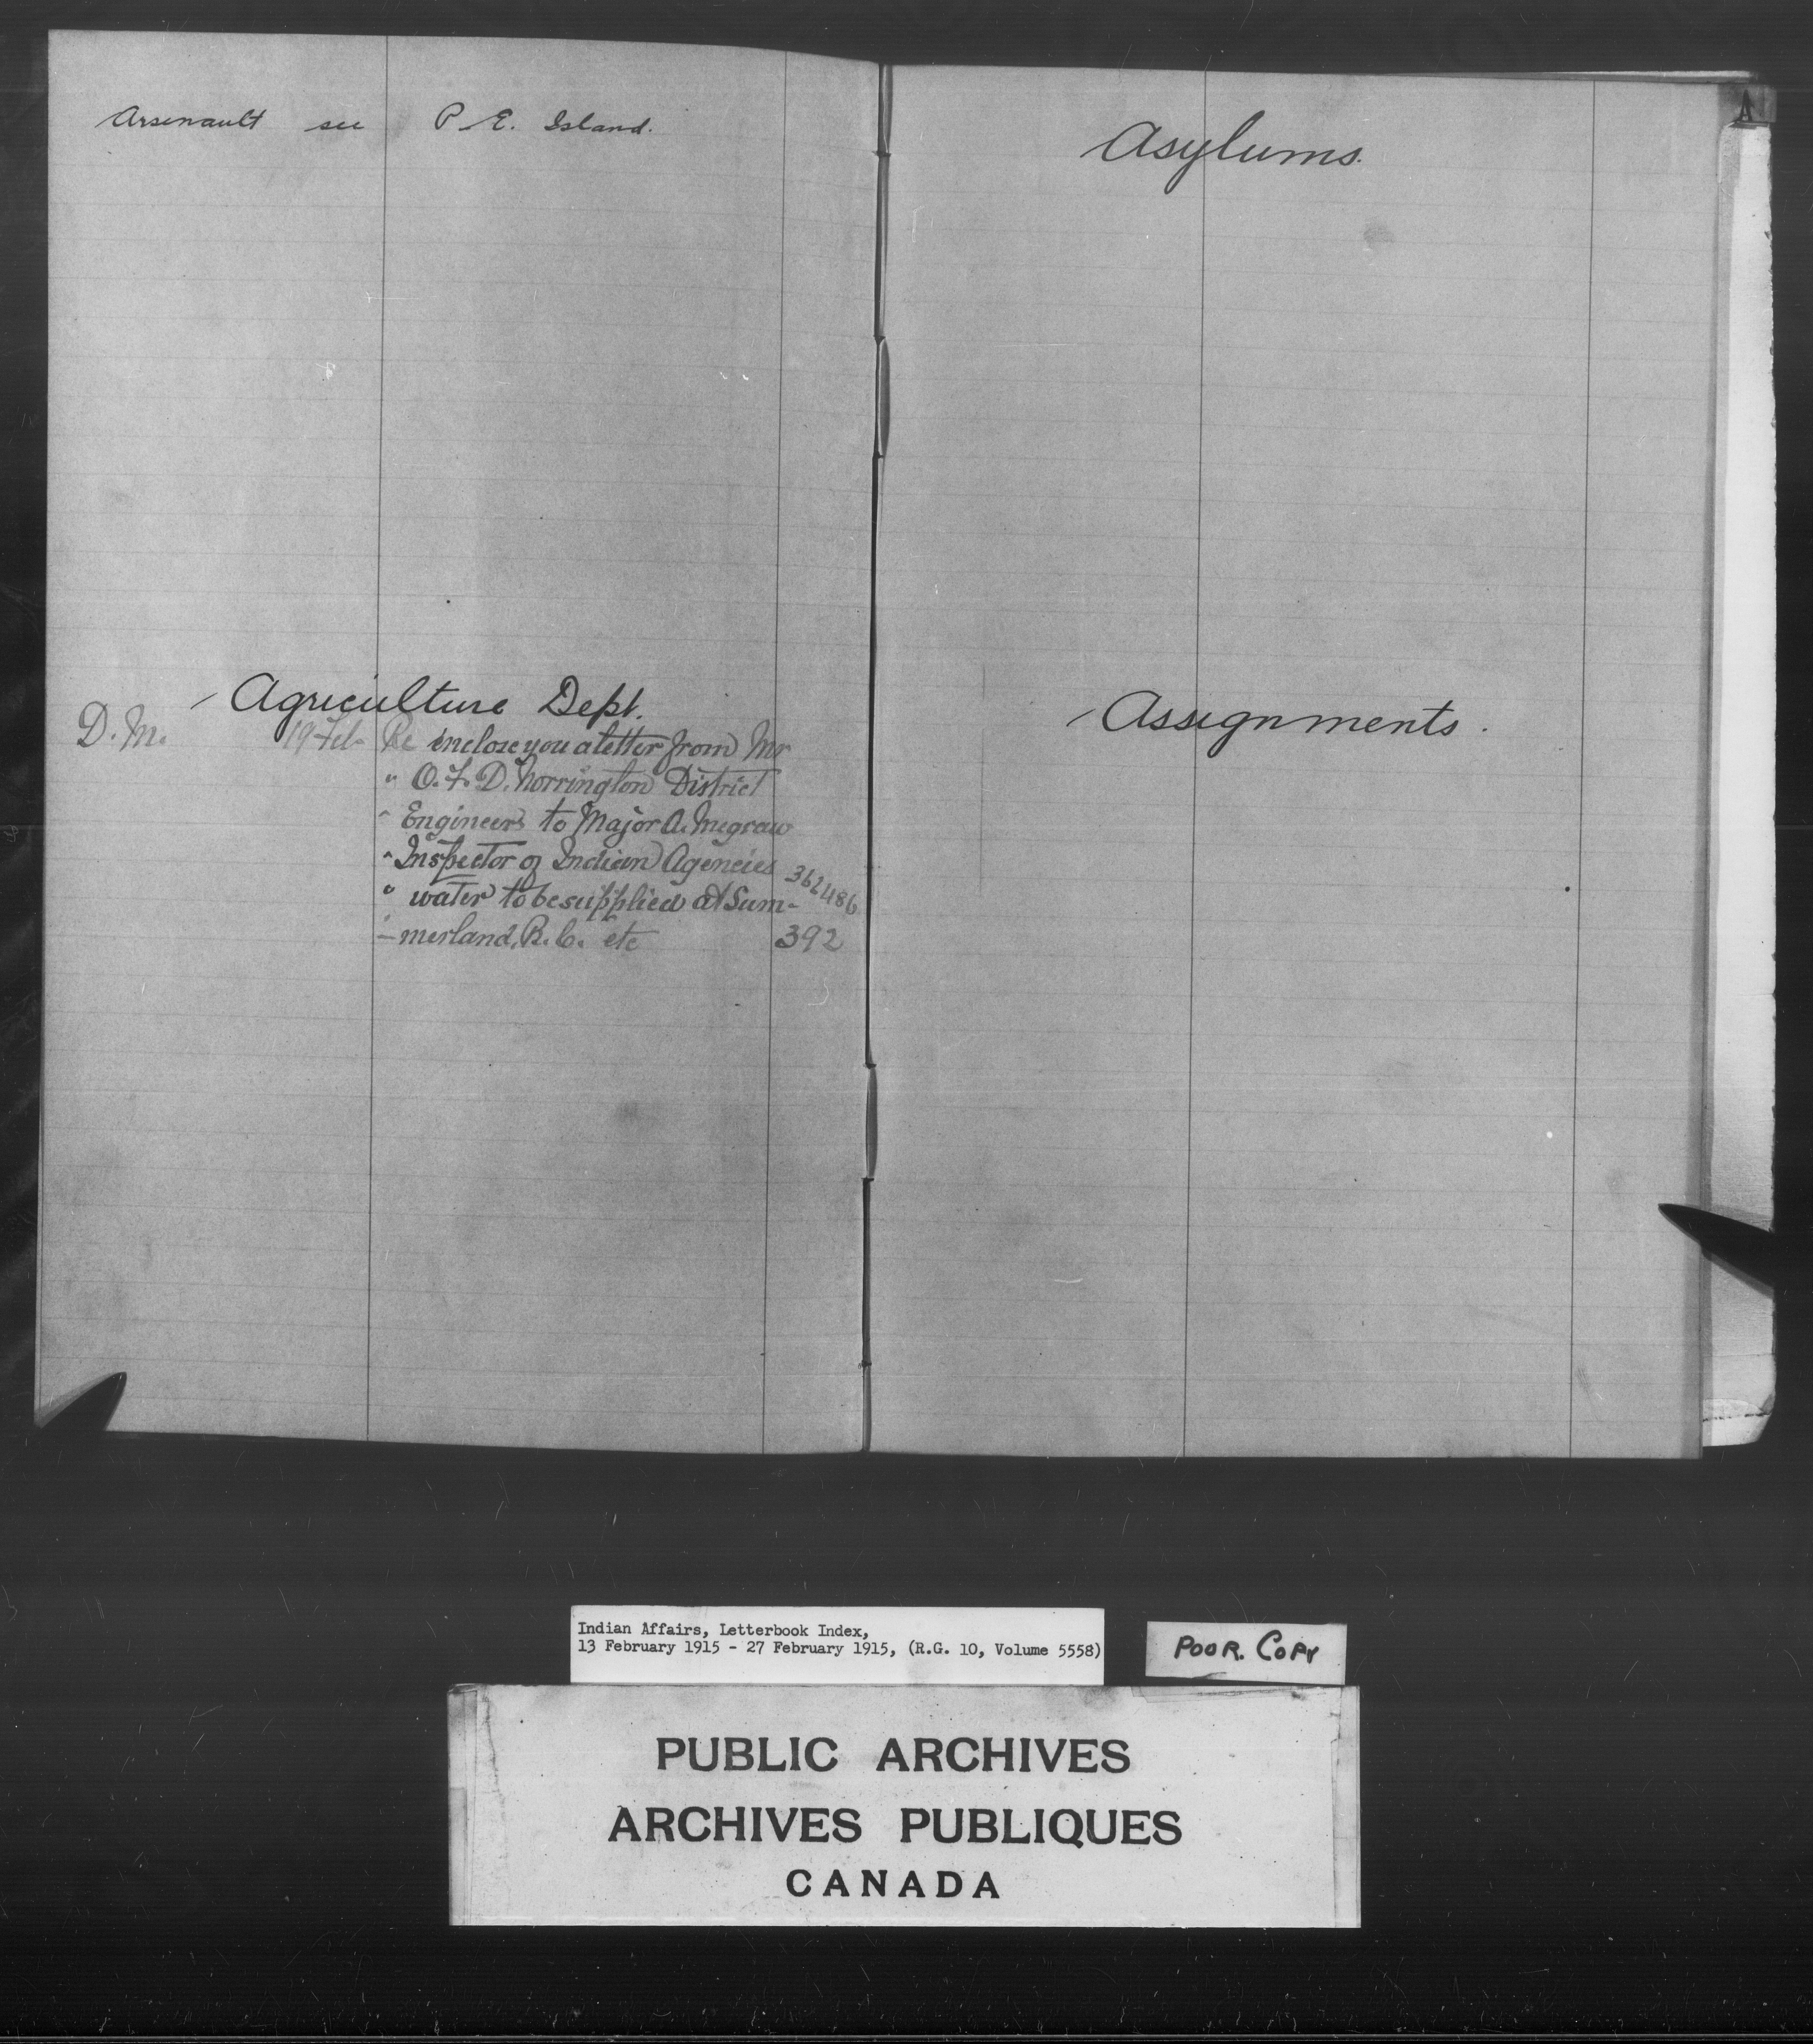 Arsenault see P. E. Island.
Agriculture Dept.
D. M. 19 Feb Re enclose you a letter from Mr
" O. F. D. Norrington District
" Engineer to Major A. Megraw
" Inspector of Indian Agencies 362486
" water to be supplied at Sum-
- merland, B. C. etc 392
A
Asylums.
Assignments.
Indian Affairs, Letterbook Index,
13 February 1915 - 27 February 1915, (R.G. 10, Volume 5558)
POOR. COPY
PUBLIC ARCHIVES
ARCHIVES PUBLIQUES
CANADA